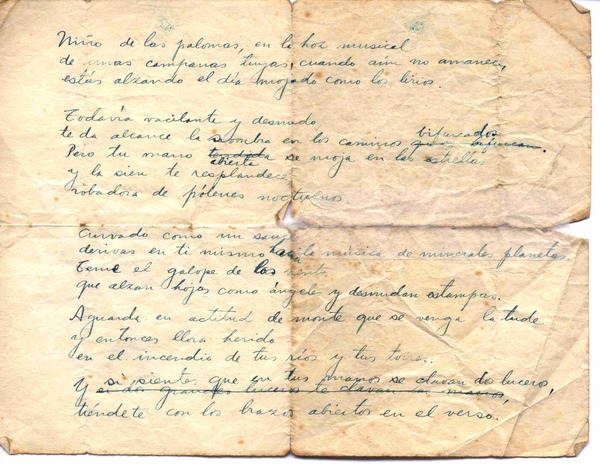 Niño de las palomas, en la hoz musical
de unas campanas tuyas, cuando aún no amanece,
estás alzando el día mojado como los lirios.
Todavía vacilante y desnudo
te da alcance la sombra en los caminos que se bifurcan. bifurcados
Pero tu mano tendida abierta se moja en las estrellas
y la sien te resplandece
robadora de pólenes nocturnos.
Curvado como un
derivas en ti mismo hacia la música de minerales planetas.
Teme el galope de los
que alzan hojas como ángeles y desnudan estampas.
Aguarda en actitud de monte que se venga la tarde
y entonces llora herido
en el incendio de tus ríos y tus
Y si sientes que en tus manos se clavan dos luceros,
si dos grandes luceros te clavan las manos,
tiéndete con los brazos abiertos en el verso.